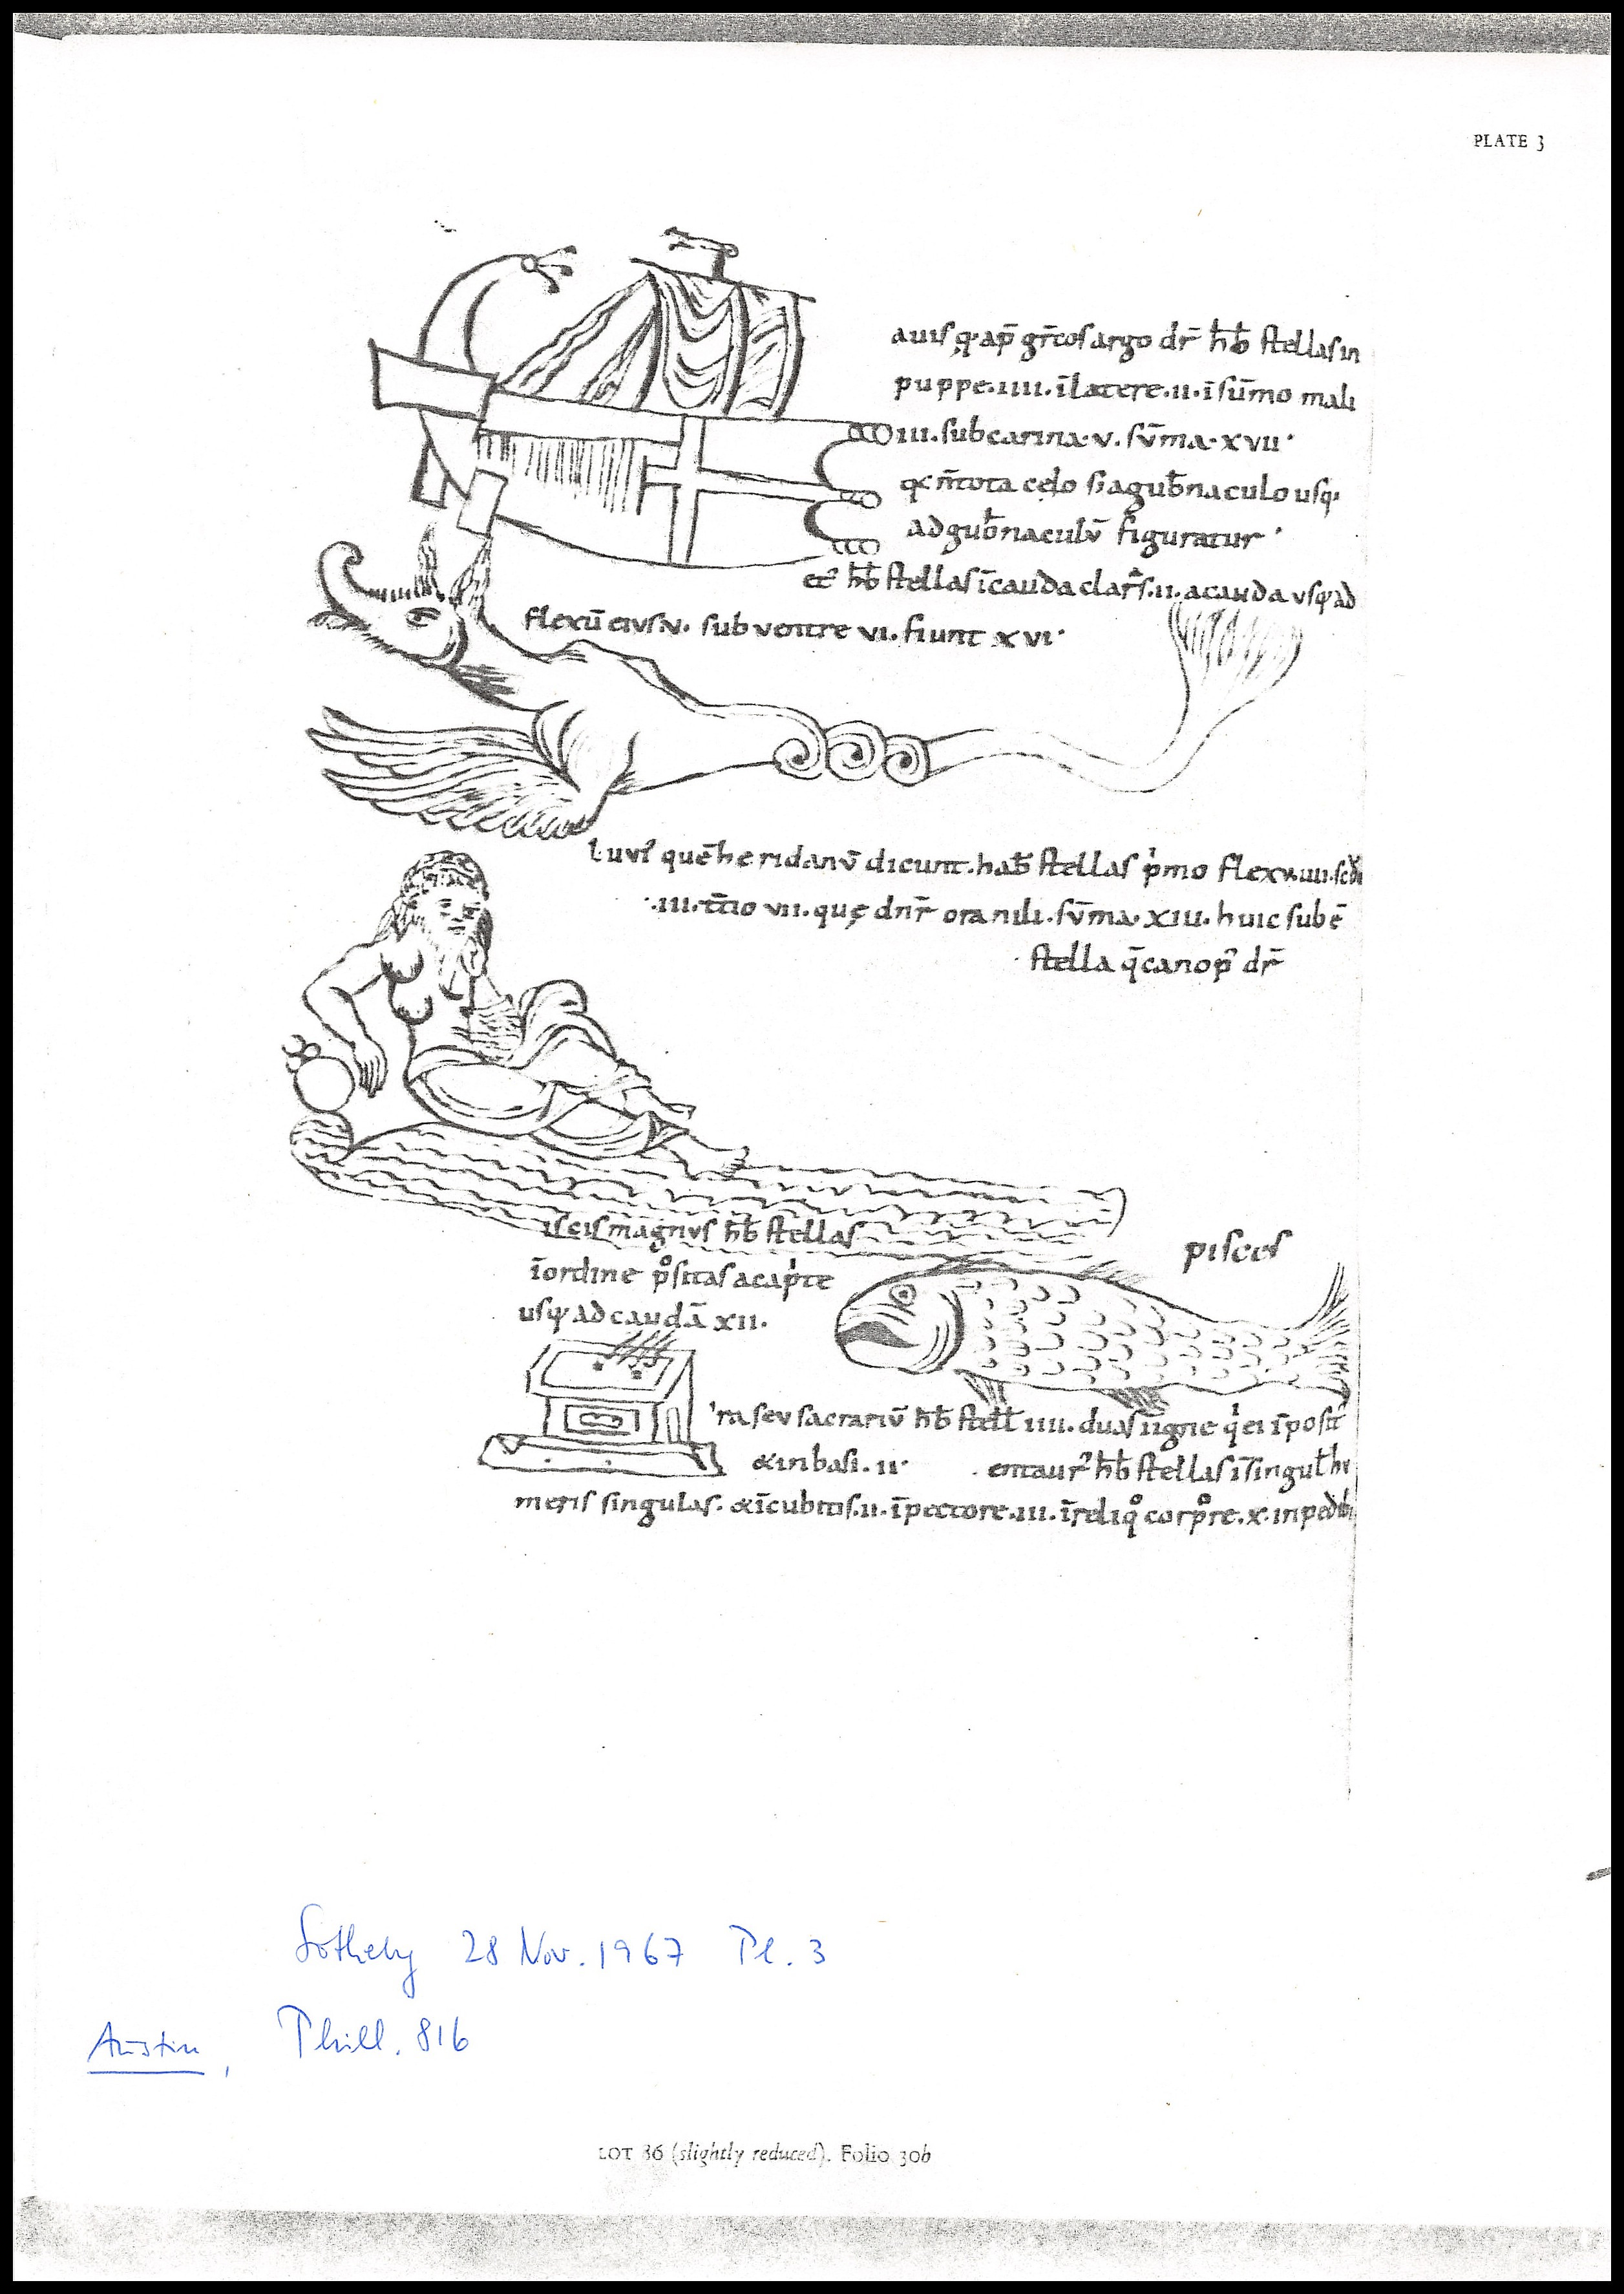 PLATE 3
auiſ q· ap̄ gr̄coſ argo dr̄ h̄b̄ ſtellaſ in
puppe·iiii· ī latere·ii· ī ſūmo mali
iii·ſub carina·v·ſūma·xvii·
ñ tota cęlo ſ; a gub̄naculo uſq;
ad gub̄naculū figuratur·
h̄b̄ ſtellaſ ī cauda clarſ·ii· a cauda uſq; ad
flexū eiuſ·v· ſub ventre vi· fiunt xvi·
luviꝰ quē heridanū dicunt· hab̄ ſtellaſ p̍mo flexu·iiii·
·iii· t̄tio vii· quę dn̄r̄ ora nili· ſūma·xiii· huic ſub ē
ſtella q̄ canopꝰ dr̄
iſciſ magnuſ h̄b̄ ſtellaſ
piſceſ
ī ordine p̊ſitaſ a cap̍te
uſq; ad caudā xii·
ra ſeu ſacrariū h̄b̄ ſtell̄ iiii· duaſ ī igne q̍ ei ī poſit̄
& in baſi·ii· entaurꝰ h̄b̄ ſtellaſ ī ſingul̄ hu
meriſ ſingulaſ· & ī cubitoſ·ii· ī pectore·iii· ī reliq̊ corp̊re·x· in pedib;
Sotheby 28 Nov. 1967 Pl. 3
Austin, Phill. 816
LOT 86 (slightly reduced). Folio 30b